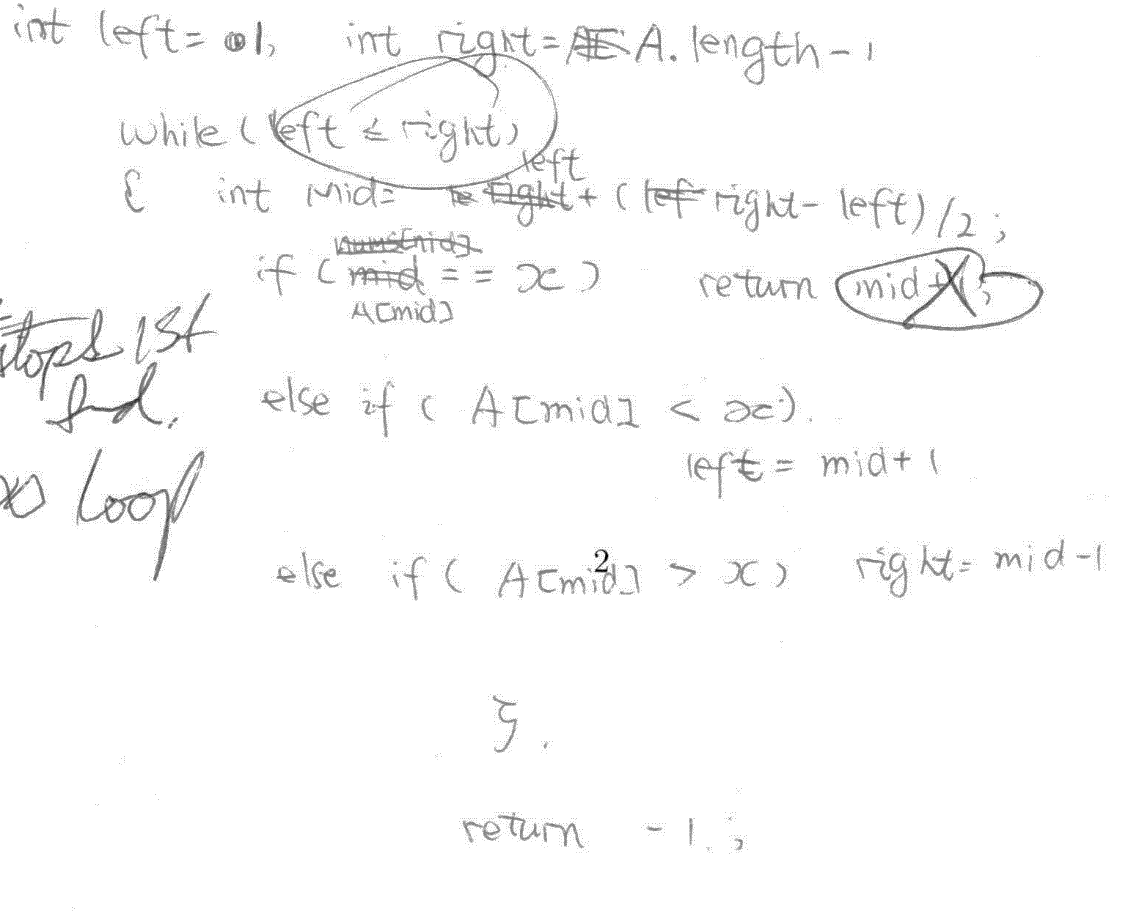 int left= 1, int right= A.length-1
while (left ≤ right)
{ int mid= left + (right- left)/2;
if (A[mid] == x) return mid
stops 1st
find.
else if ( A[mid] < x).
left = mid+1
∞ loop
else if ( A[mid] > x) right= mid-1
2
}.
return -1.;